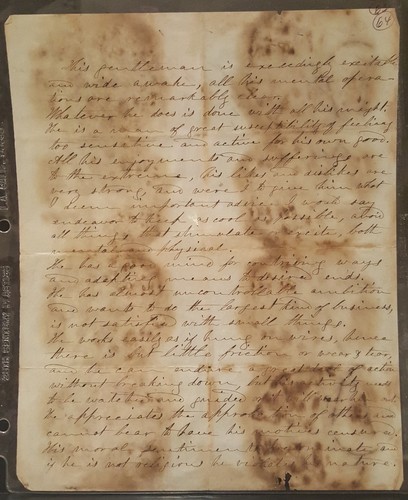 64
This gentleman is exceedingly excitable
and wide awake, all his mental opera-
tions are remarkably clear.
Whatever he does is done with all his might.
He is a man of great susceptibility of feeling
too sensitive and active for his own good.
All his enjoyments and sufferings are
to the extreme, his likes and dislikes are
very strong, and were I to give him what
I deem important advice, I would say
endeavor to keep as cool as possible, avoid
all things that stimulate or excite, both
mental and physical.
He has a good mind for contriving ways
and adapting means to desired ends.
He has almost uncontrollable ambition
and wants to do the largest kind of business,
is not satisfied with small things.
He works easily as if hung on wires, hence
there is but little friction or wear & tear,
and he can endure a great deal of action
without breaking down, but his
to be watched and guided with
He appreciates the approbation of others and
cannot bear to have his motives censured.
His moral sentiments and
if he is not religious he nature.